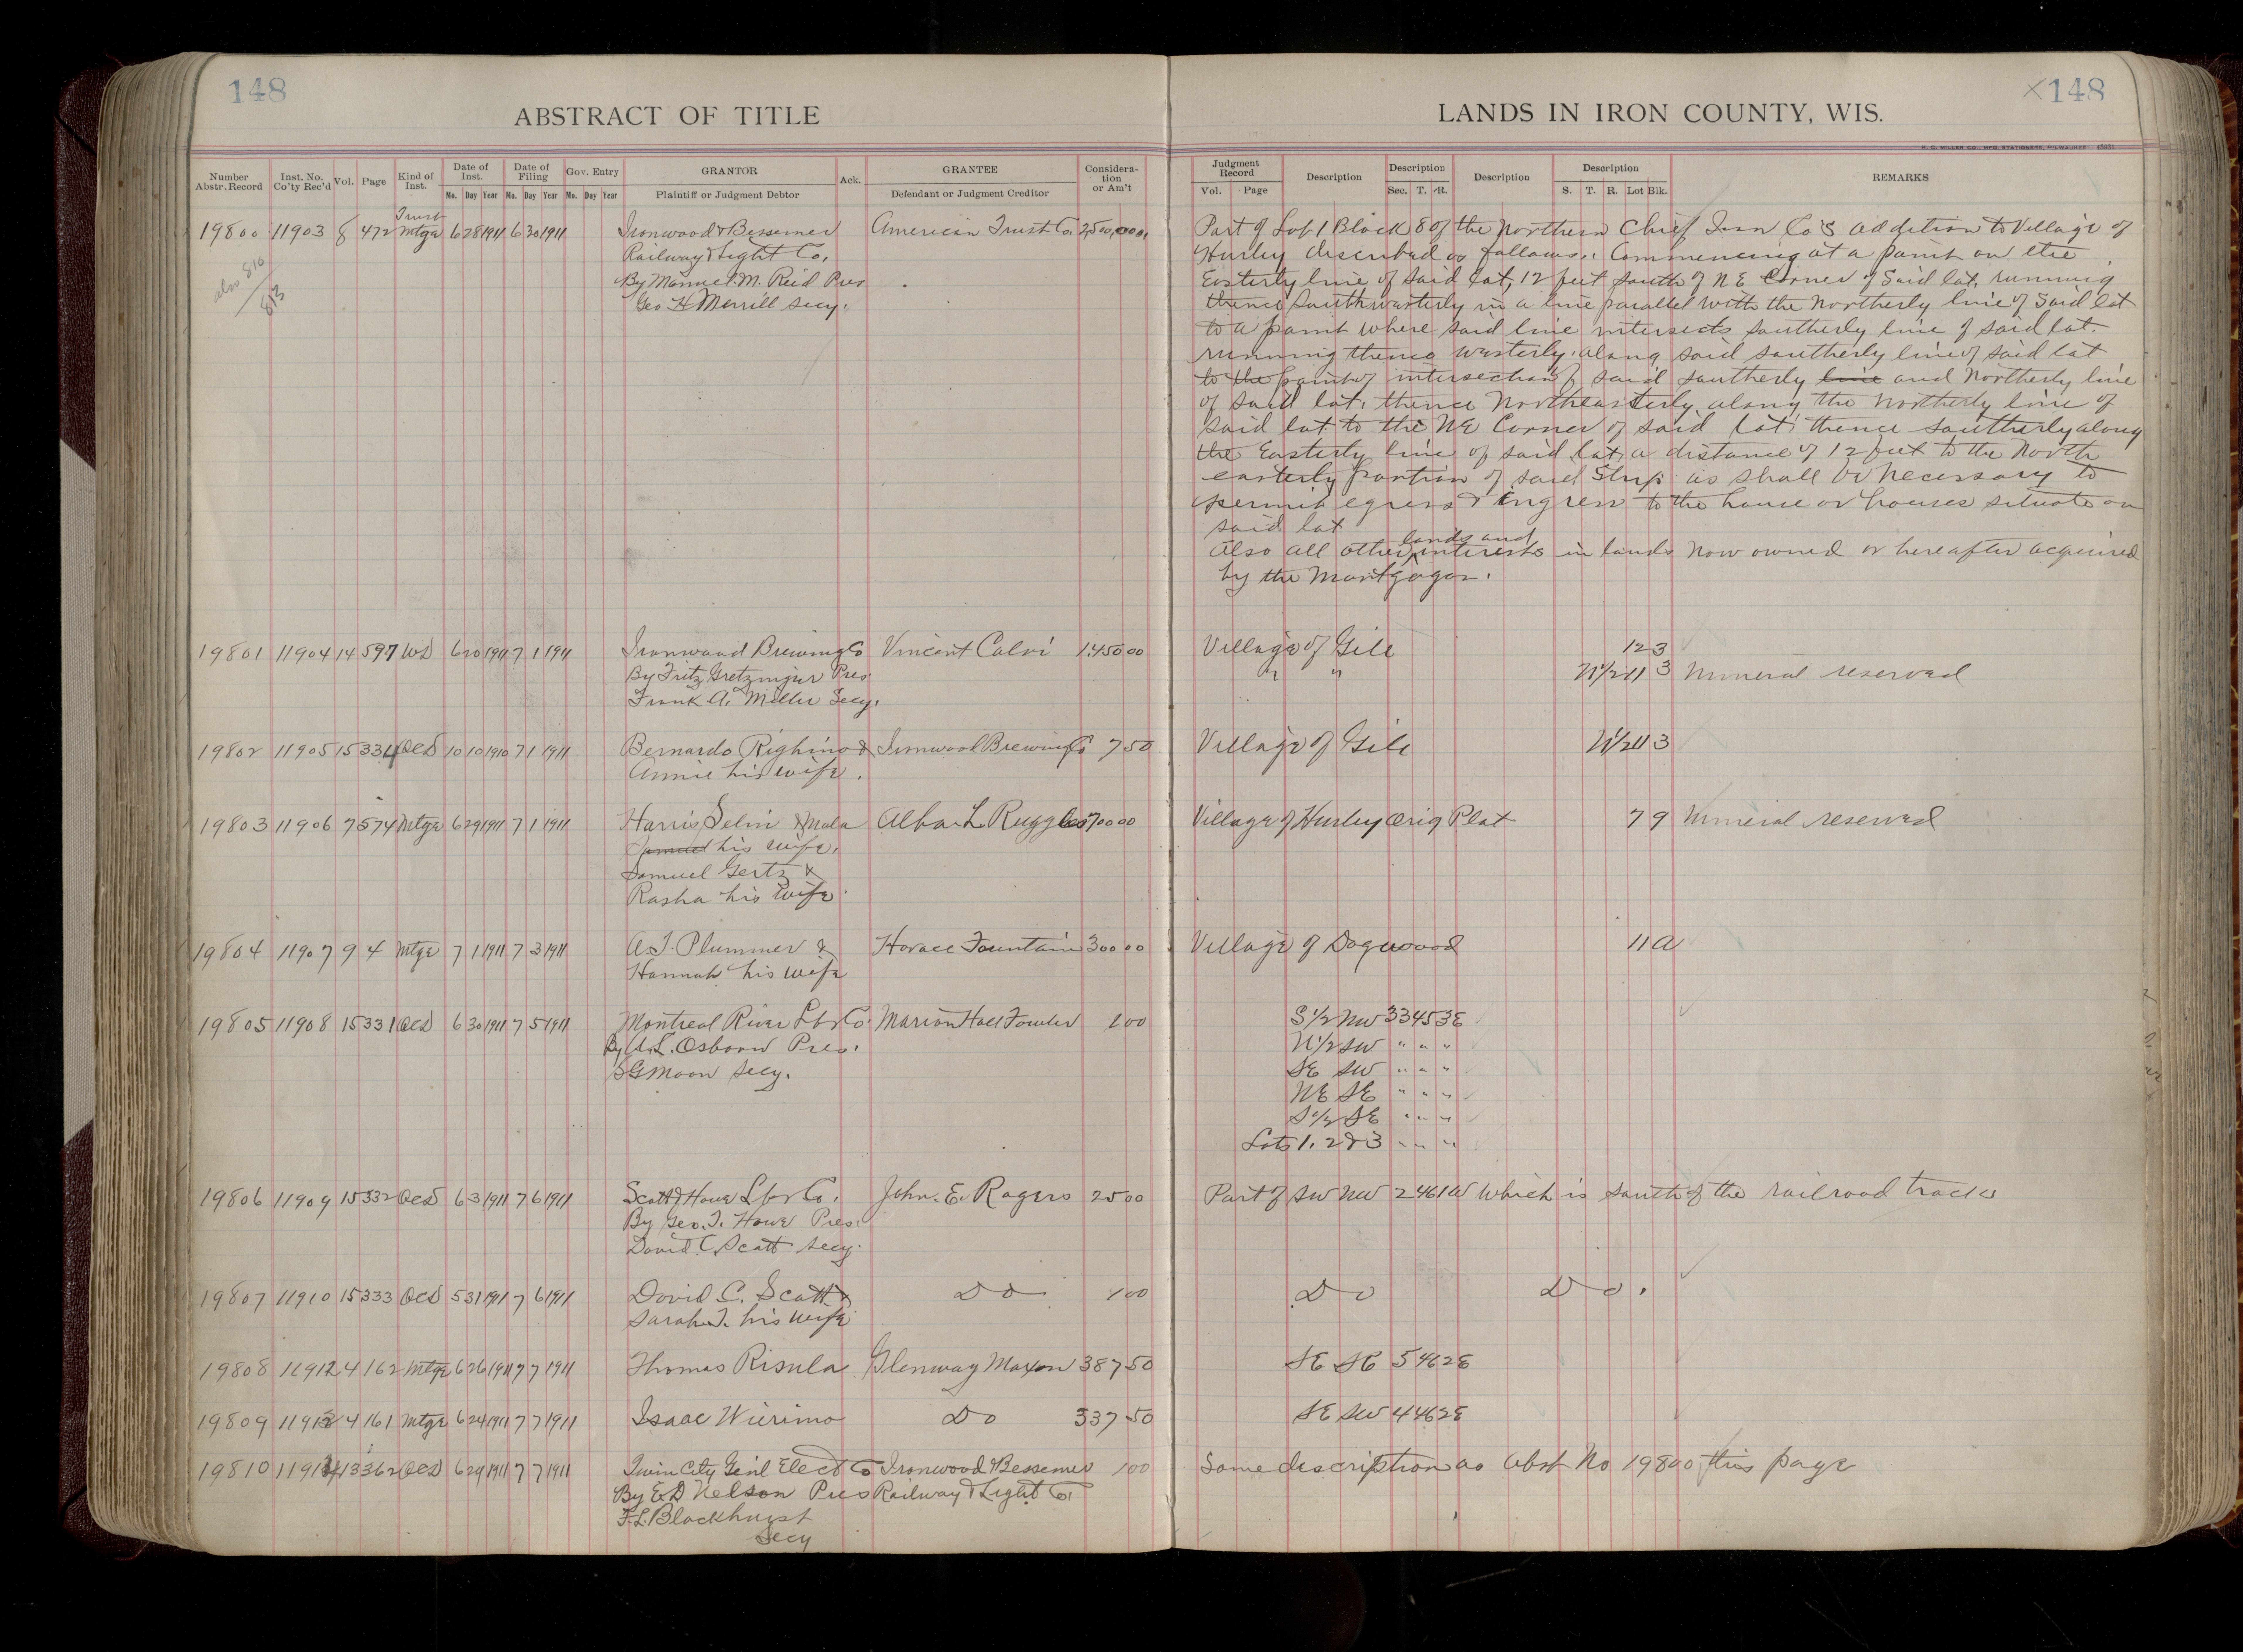 148
ABSTRACT OF TITLE
Number Abstr. Record Inst. No. Co'ty Rec'd Vol. Page Kind of Inst. Date of Inst. Mo. Day Year Date of Filing Mo. Day Year Gov. Entry Mo. Day Year GRANTOR Plaintiff or Judgment Debtor Ack. GRANTEE Defendant or Judgment Creditor Considera-tion or Am't
Trust
19800 11903 8 472 Mtge 6 28 1911 6 30 1911 Ironwood & Bessemer American Trust Co. 2,500,000.00
also 810
Railway & Light Co.
813
By Manuel M. Reid Pres
Geo H Merrill Secy.
19801 11904 14 597 WD 6 20 1911 7 1 1911 Ironwood Brewing Co Vincent Calvi 1450 00
By Fritz Gretzinger Pres.
Frank A. Miller Secy.
19802 11905 15 334 QCD 10 10 1910 7 1 1911 Bernardo Righino & Ironwood Brewing Co 7 50
Annie his wife.
19803 11906 7 574 Mtge 6 29 1911 7 1 1911 Harris Selin & Mala Alba L Ruggles 700 00
his wife.
Samuel Gertz &
Rasha his wife.
19804 11907 9 4 Mtge 7 1 1911 7 3 1911 A.T. Plummer & Horace Fountain 300 00
Hannah his wife
19805 11908 15 331 QCD 6 30 1911 7 5 1911 Montreal River Lbr Co. Marion Hall Fowler 1 00
By A.L. Osborn Pres.
S G Moon Secy.
19806 11909 15 332 QCD 6 3 1911 7 6 1911 Scott & Howe Lbr Co. John. E. Rogers 25 00
By Geo. T. Howe Pres.
David C Scott Secy.
19807 11910 15 333 QCD 5 31 1911 7 6 1911 David C. Scott & Do 1 00
Sarah T. his wife
19808 11912 4 162 Mtge 6 26 1911 7 7 1911 Thomas Risula Glenway Maxon 387 50
19809 11913 4 161 Mtge 6 24 1911 7 7 1911 Isaac Wierimo Do 337 50
19810 11914 13 362 QCD 6 29 1911 7 7 1911 Twin City Gen'l Elect Co Ironwood & Bessemer 1 00
By E D Nelson Pres Railway & Light Co.
F.L. Blackhurst
Secy
×148
LANDS IN IRON COUNTY, WIS.
H. G. MILLER CO., MFG. STATIONERS, MILWAUKEE
Judgment Record Vol. Page Description Description Sec. T. R. Description Description S. T. R. Lot Blk. REMARKS
Part of Lot 1 Block 8 of the Northern Chief Iron Co's addition to Village of
Hurley described as follows: Commencing at a point on the
Easterly line of said lot, 12 feet south of N E Corner of said lot, running
thence Southwesterly in a line parallel with the Northerly line of said lot
to a point where said line intersects southerly line of said lot.
running thence westerly along said southerly line of said lot
to the point of intersection of said southerly line and Northerly line
of said lot, thence Northeasterly along the Northerly line of
said lot to the NE Corner of said lot thence southerly along
the Easterly line of said lot a distance of 12 feet to the North
easterly portion of said Strip as shall be necessary to
permit egress & ingress to the house or houses situate on
said lot
lands and
Also all other interests in lands now owned or hereafter acquired
by the Mortgagor.
Village of Gile 12 3
" " N½ 11 3 Mineral reserved
Village of Gile N½ 11 3
Village of Hurley Orig Plat 7 9 Mineral reserved
Village of Dogwood 11 A
S½ NW 33 45 3E
N½ SW " " "
SE SW " " "
NE SE " " "
S½ SE " " "
Lots 1, 2 & 3 " " "
Part of SW NW 2 46 1W which is south of the railroad tracks
Do Do.
SE SE 5 46 2E
SE SW 4 46 2E
Same description as Abst No 19800, this page